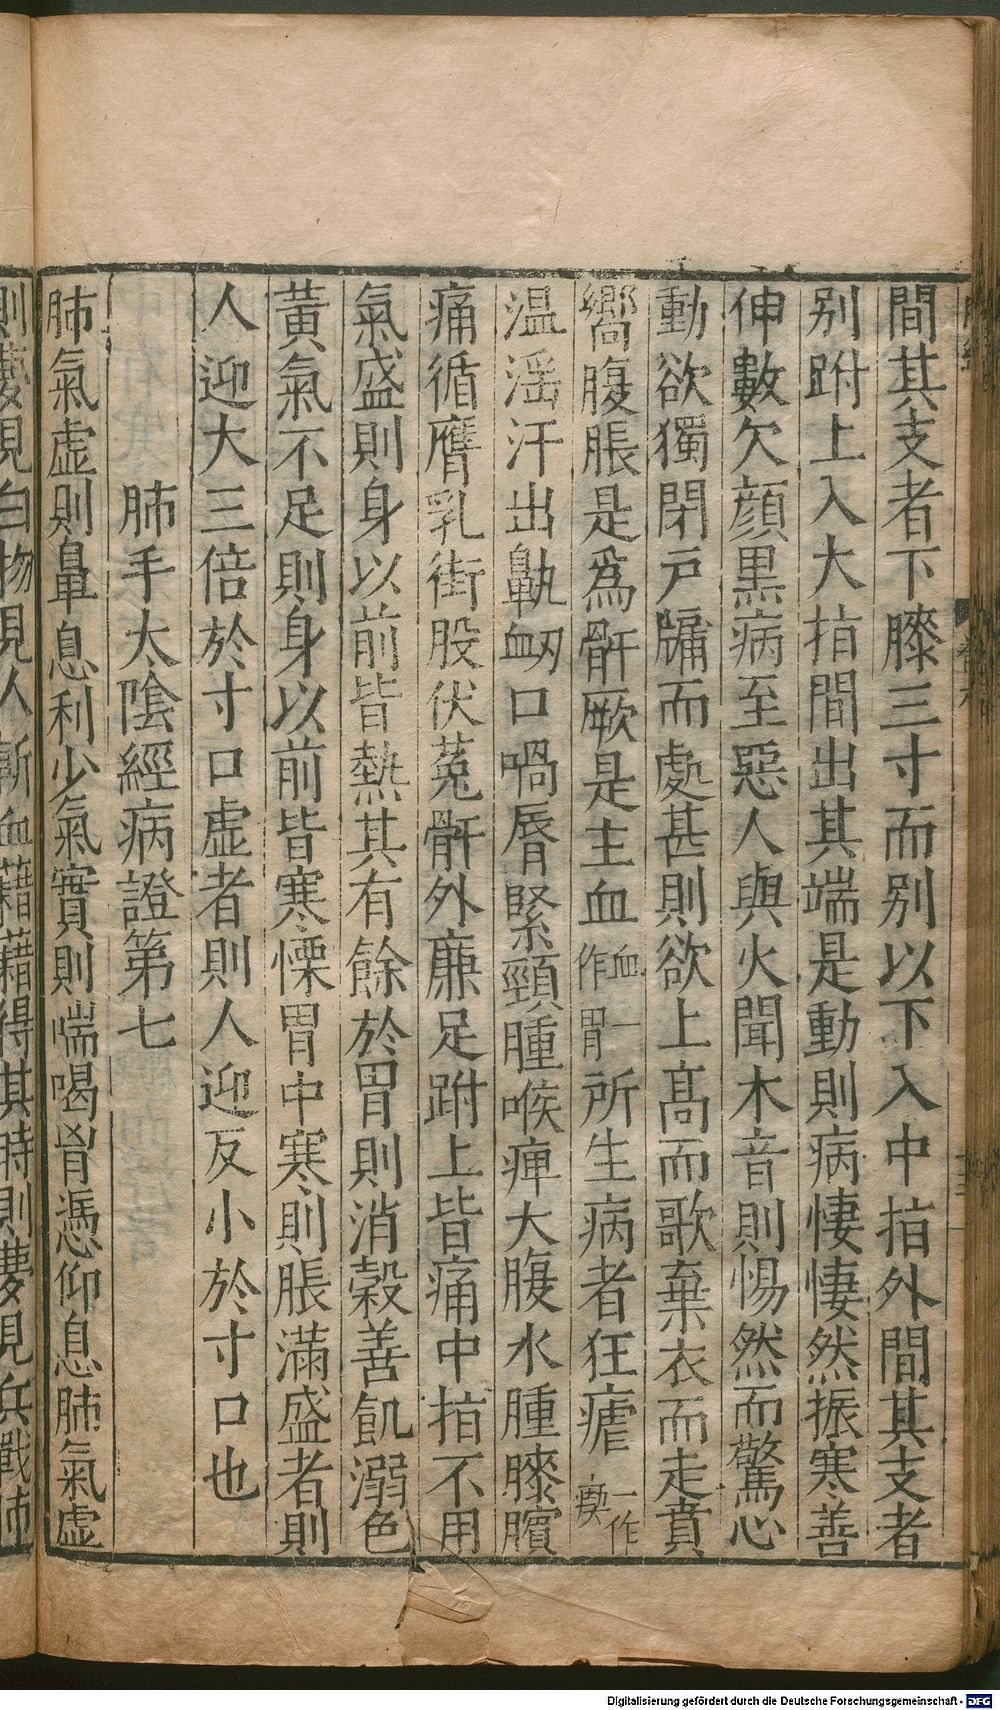 間其支者下膝三寸而别以下入中指外間其支者
别跗上入大指間出其端是動則病悽悽然振寒善
伸數欠顔黒病至惡人與火聞木音則惕然而驚心
動欲獨閉戸牖而處甚則欲上髙而歌棄衣而走賁
嚮腹脹是爲骭厥是主血血一作胃所生病者狂瘧一作瘈
温滛汗出鼽衂口喎唇緊頸腫喉痺大腹水腫膝臏
痛循膺乳街股伏菟骭外廉足跗上皆痛中指不用
氣盛則身以前皆熱其有餘於胃則消穀善飢溺色
黄氣不足則身以前皆寒慄胃中寒則脹滿盛者則
人迎大三倍於寸口虚者則人迎反小於寸口也
肺手太陰經病證第七
肺氣虚則鼻息利少氣實則喘喝胷憑仰息肺氣虚
則夢見白物見人斬血藉藉得其時則夢見兵戰肺
Digitalisierung gefördert durch die Deutsche Forschungsgemeinschaft - DFG